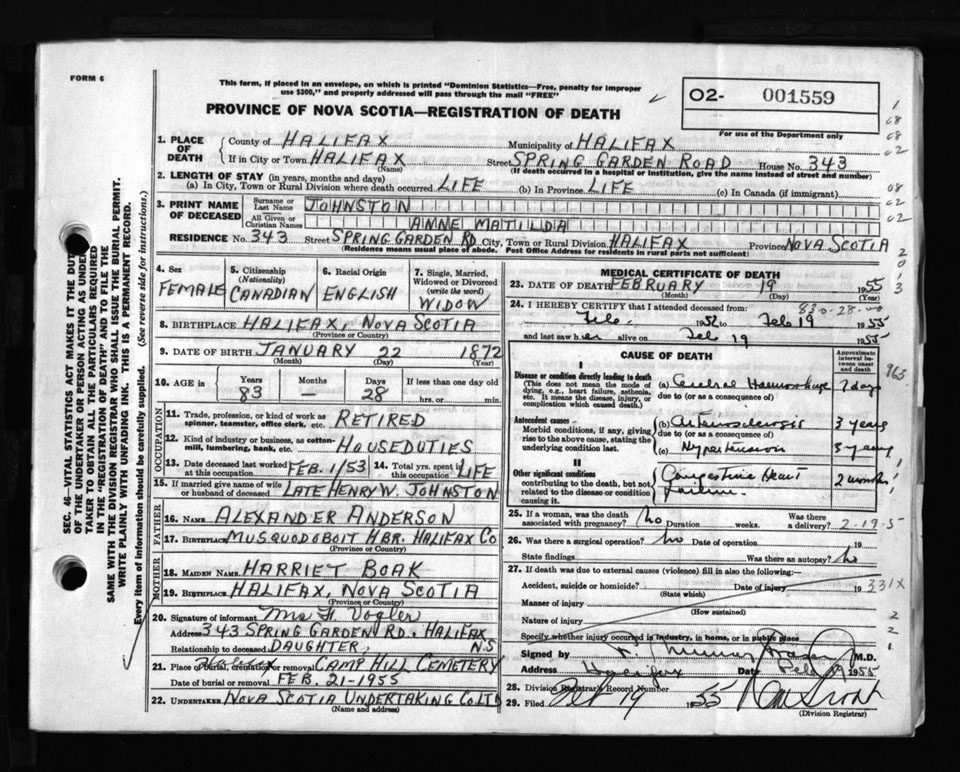 FORM 6
This form, if placed in an envelope, on which is printed "Dominion Statistics—Free, penalty for improper
use $300," and properly addressed will pass through the mail "FREE"
PROVINCE OF NOVA SCOTIA—REGISTRATION OF DEATH
O2- 001559
For use of the Department only
SEC. 46 VITAL STATISTICS ACT MAKES IT THE DUTY
OF THE UNDERTAKER OR PERSON ACTING AS UNDER-
TAKER TO OBTAIN ALL THE PARTICULARS REQUIRED
IN THE "REGISTRATION OF DEATH" AND TO FILE THE
SAME WITH THE DIVISION REGISTRAR WHO SHALL ISSUE THE BURIAL PERMIT.
WRITE PLAINLY WITH UNFADING INK. THIS IS A PERMANENT RECORD.
Every item of information should be carefully supplied. (See reverse side for instructions.)
1. PLACE OF DEATH County of HALIFAX Municipality of HALIFAX
If in City or Town HALIFAX (Name) Street SPRING GARDEN ROAD House No. 343
(If death occurred in a hospital or institution, give the name instead of street and number)
2. LENGTH OF STAY (in years, months and days)
(a) In City, Town or Rural Division where death occurred LIFE (b) In Province LIFE (c) In Canada (if immigrant)
3. PRINT NAME OF DECEASED Surname or Last Name JOHNSTON
All Given or Christian Names ANNE MATILDA
RESIDENCE No. 343 Street SPRING GARDEN RD City, Town or Rural Division HALIFAX Province NOVA SCOTIA
(Residence means usual place of abode. Post Office Address for residents in rural parts not sufficient)
4. Sex FEMALE
5. Citizenship (Nationality) CANADIAN
6. Racial Origin ENGLISH
7. Single, Married, Widowed or Divorced (write the word) WIDOW
8. BIRTHPLACE HALIFAX, NOVA SCOTIA
(Province or Country)
9. DATE OF BIRTH JANUARY 22 1872
(Month) (Day) (Year)
10. AGE in Years 83 Months — Days 28 If less than one day old hrs. or min.
OCCUPATION
11. Trade, profession, or kind of work as spinner, teamster, office clerk, etc. RETIRED
12. Kind of industry or business, as cotton-mill, lumbering, bank, etc. HOUSEDUTIES
13. Date deceased last worked at this occupation FEB. 1/53 14. Total yrs. spent in this occupation LIFE
15. If married give name of wife or husband of deceased LATE HENRY W. JOHNSTON
FATHER
16. NAME ALEXANDER ANDERSON
17. BIRTHPLACE MUSQUODOBOIT HBR. HALIFAX CO
(Province or Country)
MOTHER
18. MAIDEN NAME HARRIET BOAK
19. BIRTHPLACE HALIFAX, NOVA SCOTIA
(Province or Country)
20. Signature of informant Mrs H. Vogler
Address 343 SPRING GARDEN RD. HALIFAX
Relationship to deceased DAUGHTER, N.S
21. Place of burial, cremation or removal CAMP HILL CEMETERY
Date of burial or removal FEB. 21-1955
22. UNDERTAKER NOVA SCOTIA UNDERTAKING CO. LTD
(Name and address)
MEDICAL CERTIFICATE OF DEATH
23. DATE OF DEATH FEBRUARY 19 1955
(Month) (Day) (Year)
83 0-28-
24. I HEREBY CERTIFY that I attended deceased from:
Feb. 1952 to Feb 19 1955
and last saw her alive on Feb 19 1955
CAUSE OF DEATH Approximate interval between onset and death
I
Disease or condition directly leading to death
(This does not mean the mode of dying, e.g., heart failure, asthenia, etc. It means the disease, injury, or complication which caused death.)
(a) Cerebral Haemorrhage 2 days
due to (or as a consequence of)
Antecedent causes
Morbid conditions, if any, giving rise to the above cause, stating the underlying condition last
(b) Arteriosclerosis 3 years
due to (or as a consequence of)
(c) Hypertension 3 years
II
Other significant conditions contributing to the death, but not related to the disease or condition causing it.
Congestive Heart Failure 2 months
25. If a woman, was the death associated with pregnancy? No Duration weeks. Was there a delivery? 2-19-5
26. Was there a surgical operation? No Date of operation 19
State findings Was there an autopsy? No
27. If death was due to external causes (violence) fill in also the following:—
Accident, suicide or homicide? Date of injury 19 331X
(State which)
Manner of injury
(How sustained)
Nature of injury
Specify whether injury occurred in industry, in home, or in public place
Signed by Murray Fraser M.D.
Address Halifax Date Feb 19 1955
28. Division Registrar's Record Number
29. Filed Feb 19 1955
(Division Registrar)